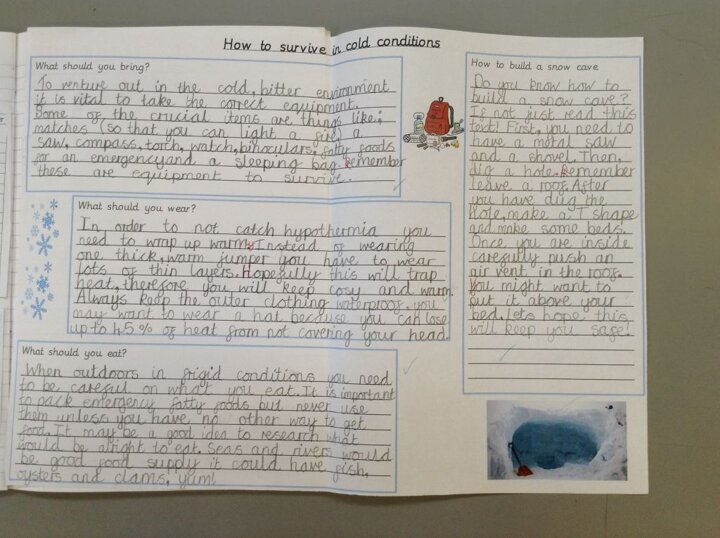 How to survive in cold conditions
What should you bring?
To venture out in the cold, bitter environment
it is vital to take the correct equipment.
Some of the crucial items are things like;
matches (so that you can light a fire) a
saw, compass, torch, watch, binoculars, fatty foods
for an emergency and a sleeping bag. Remember
these are equipment to survive.
What should you wear?
In order to not catch hypothermia you
need to wrap up warm. Instead of wearing
one thick, warm jumper you have to wear
lots of thin layers. Hopefully this will trap
heat, therefore you will keep cosy and warm.
Always keep the outer clothing waterproof. you
may want to wear a hat because you can lose
up to 45% of heat from not covering your head.
What should you eat?
When outdoors in frigid conditions you need
to be careful on what you eat. It is important
to pack emergency fatty foods but never use
them unless you have no other way to get
food. It may be a good idea to research what
would be alright to eat. Seas and rivers would
be good food supply it could have fish,
oysters and clams, yum!
How to build a snow cave
Do you know how to
build a snow cave?
If not just read this
text! First, you need to
have a metal saw
and a shovel. Then,
dig a hole. Remember
leave a roof. After
you have dug the
hole, make a T shape
and make some beds.
Once you are inside
carefully push an
air vent in the roof.
You might want to
put it above your
bed. Lets hope this
will keep you safe!